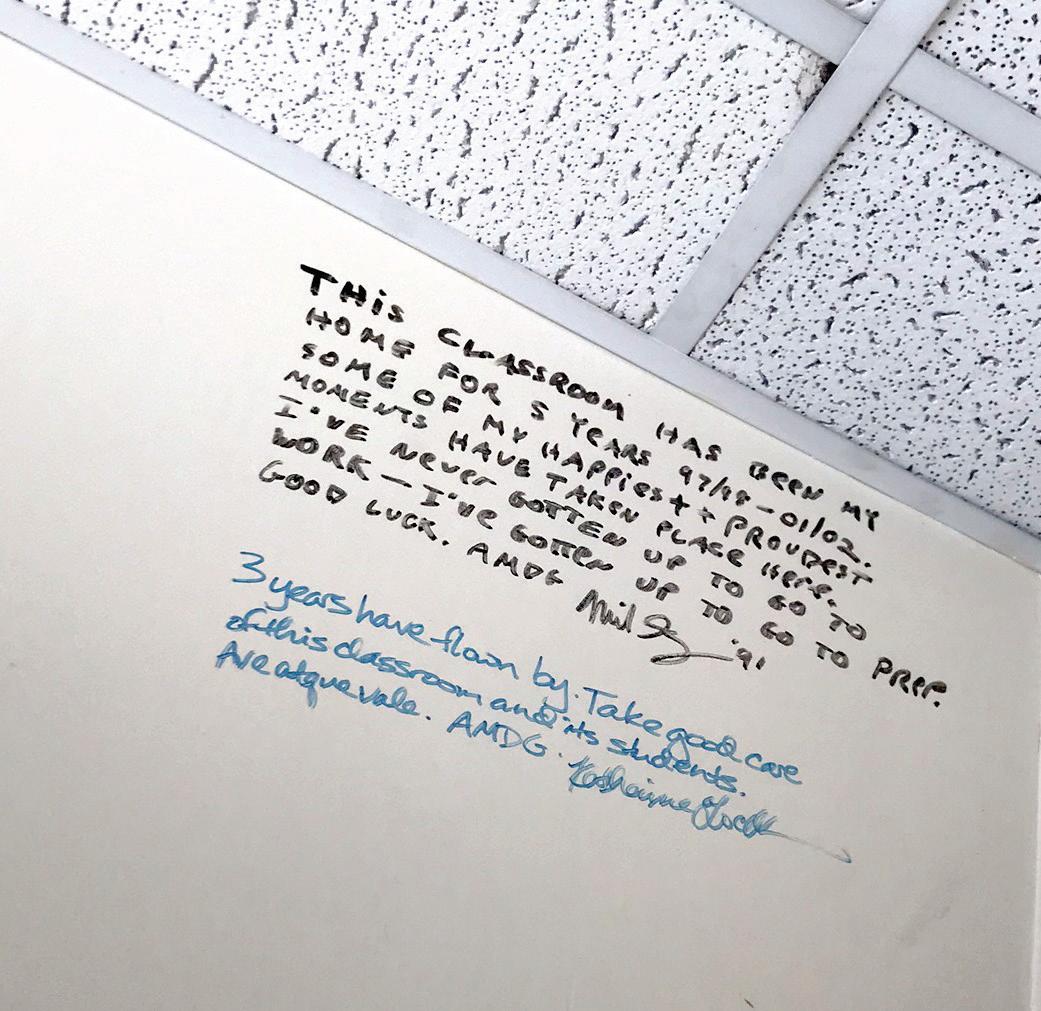 THIS CLASSROOM HAS BEEN MY
HOME FOR 5 YEARS 97/98 - 01/02.
SOME OF MY HAPPIEST + PROUDEST
MOMENTS HAVE TAKEN PLACE HERE.
I'VE NEVER GOTTEN UP TO GO TO
WORK — I'VE GOTTEN UP TO GO TO PREP.
GOOD LUCK. AMDG '91
3 years have flown by. Take good care
of this classroom and its students.
Ave atque vale. AMDG. Katherine